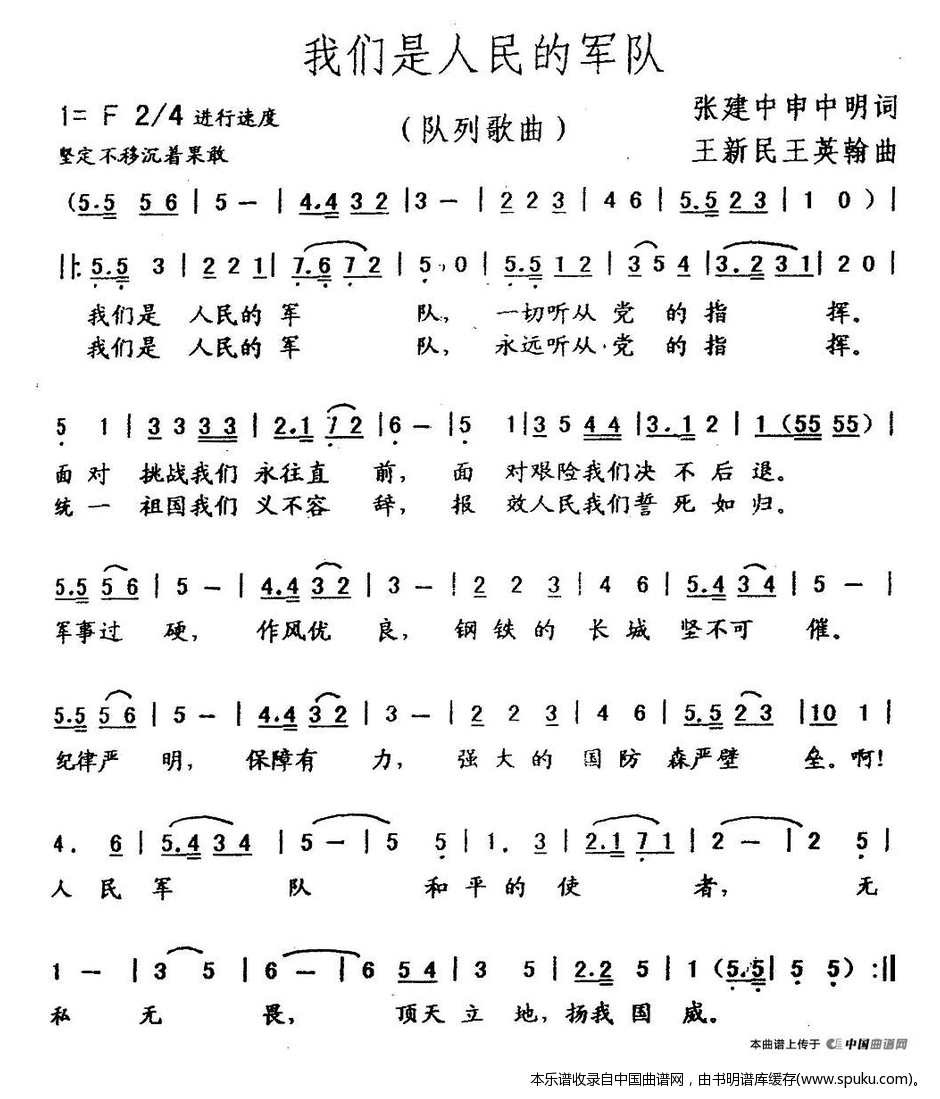 我们是人民的军队
1= F 2/4 进行速度
(队列歌曲)
张建中申中明词
坚定不移沉着果敢
王新民王英翰曲
(5.5 5 6 | 5 — | 4.4 3 2 | 3 — | 2 2 3 | 4 6 | 5.5 2 3 | 1 0 ) |
‖: 5.5 3 | 2 2 1 | 7.6 7 2 | 5 0 | 5.5 1 2 | 3 5 4 | 3.2 3 1 | 2 0 |
我们是 人民的 军 队, 一切听从 党 的 指 挥。
我们是 人民的 军 队, 永远听从 党 的 指 挥。
5 1 | 3 3 3 3 | 2.1 7 2 | 6 — | 5 1 | 3 5 4 4 | 3.1 2 | 1 (55 55) |
面 对 挑战我们 永往直 前, 面 对艰险我们决 不 后 退。
统 一 祖国我们 义不容 辞, 报 效人民我们誓 死 如 归。
5.5 5 6 | 5 — | 4.4 3 2 | 3 — | 2 2 3 | 4 6 | 5.4 3 4 | 5 — |
军事过 硬, 作风优 良, 钢 铁 的 长 城 坚不可 催。
5.5 5 6 | 5 — | 4.4 3 2 | 3 — | 2 2 3 | 4 6 | 5.5 2 3 | 1 0 1 |
纪律严 明, 保障有 力, 强 大 的 国 防 森严壁 垒。啊!
4. 6 | 5.4 3 4 | 5 — | 5 5 | 1. 3 | 2.1 7 1 | 2 — | 2 5 |
人 民 军 队 和 平 的 使 者, 无
1 — | 3 5 | 6 — | 6 5 4 | 3 5 | 2.2 5 | 1 (5.5 | 5 5) :‖
私 无 畏, 顶天 立 地,扬我 国 威。
本曲谱上传于 中国曲谱网
本乐谱收录自中国曲谱网，由书明谱库缓存(www.spuku.com)。